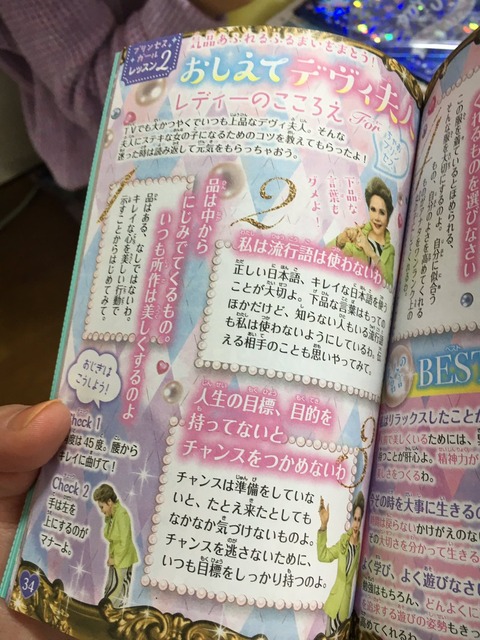 プリンセス
ガール
レッスン2
気品あふれるふるまいをまとう!
おしえてデヴィ夫人
レディーのこころえ For
TVでも大かつやくでいつも上品なデヴィ夫人。そんな
夫人にステキな女の子になるためのコツを教えてもらったよ!
迷った時は読み返して元気をもらっちゃおう。
1
品は中から
にじみでてくるもの。
いつも所作は美しくするのよ
品はある、なしではないわ。
キレイな心を美しい行動で
示すことからはじめてみて。
おじぎは
こうしよう!
Check 1
角度は45度。腰から
キレイに曲げて!
Check 2
手は左を
上にするのが
マナーよ。
2
下品な
言葉も
ダメよ!
私は流行語は使わないわ
正しい日本語、キレイな日本語を使う
ことが大切よ。下品な言葉はもっての
ほかだけど、知らない人もいる流行語
も私は使わないようにしているわ。伝
える相手のことも思いやってみて。
3
人生の目標、目的を
持ってないと
チャンスをつかめないわ
チャンスは準備をしていな
いと、たとえ来たとしても
なかなか気づけないものよ。
チャンスを逃さないために、
いつも目標をしっかり持つのよ。
34
物を選びなさい
BEST
はリラックスしたことが
精神力が
その時を大事に生きるの
よく学び、よく遊びなさい